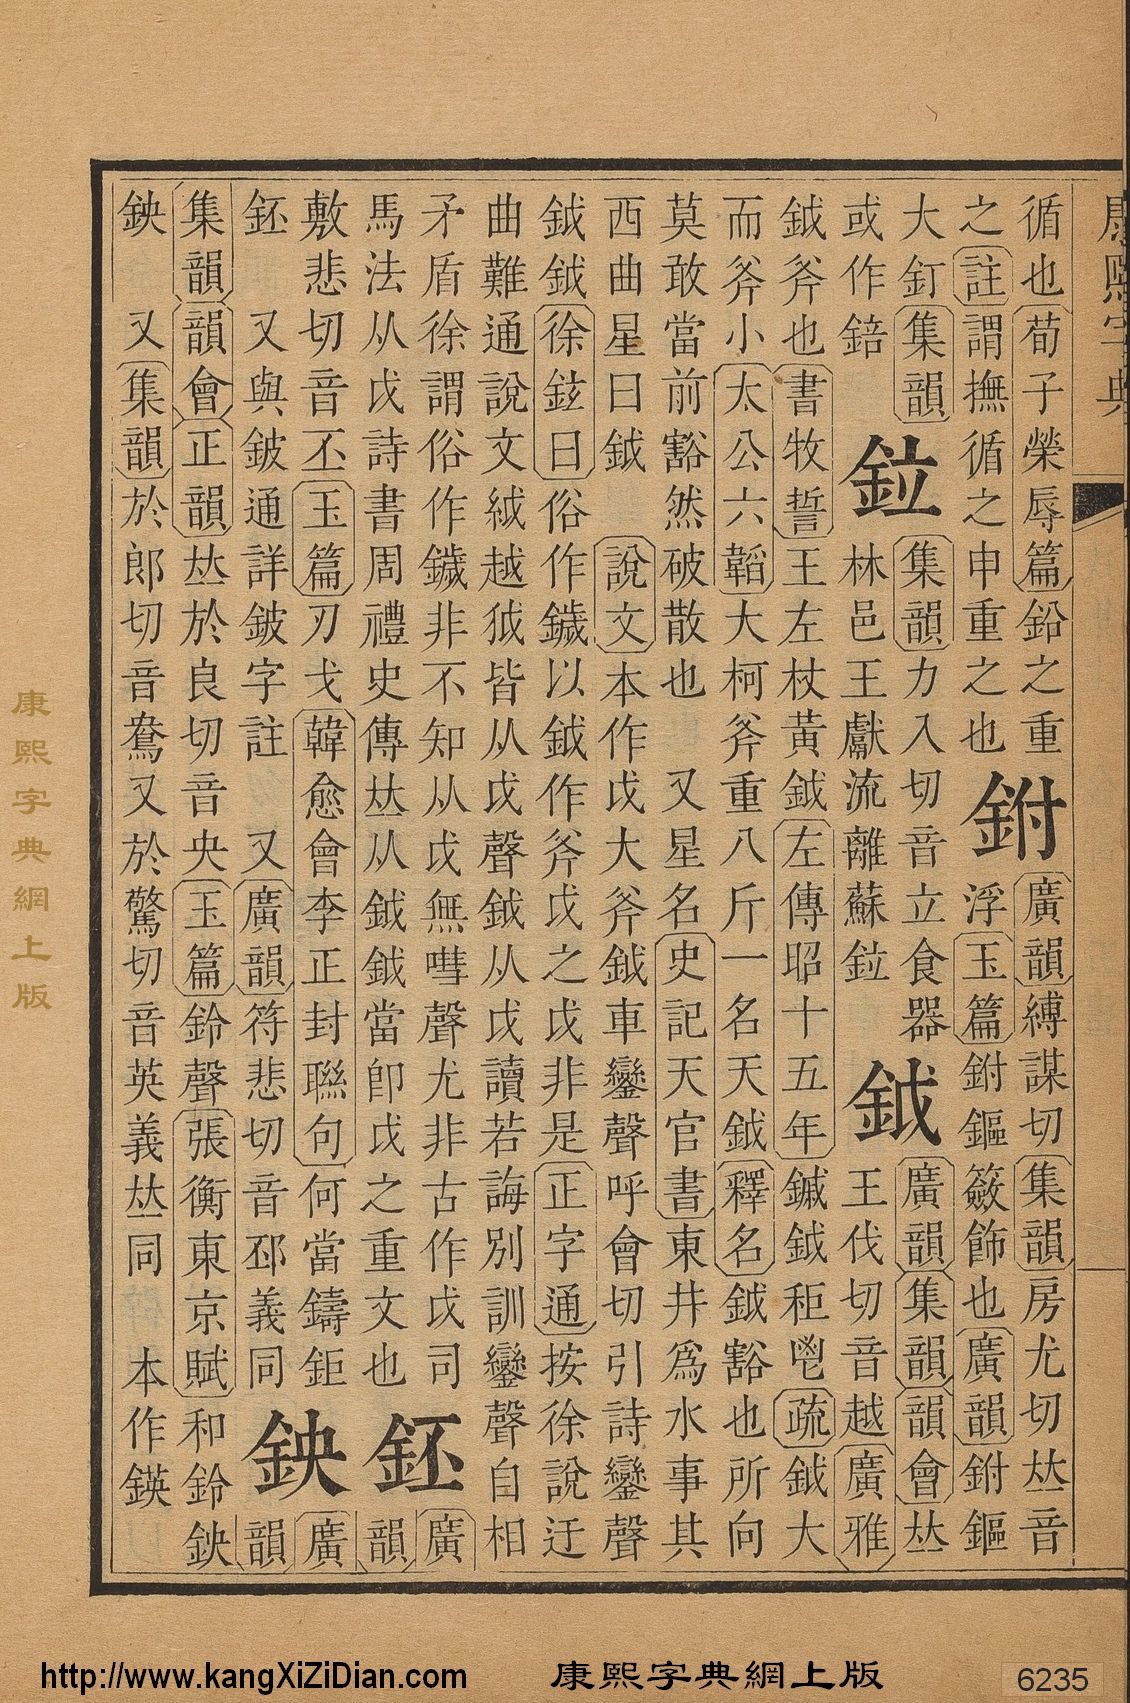 康熙字典
循也荀子榮辱篇鉛之重
之註謂撫循之申重之也
鉜
廣韻縛謀切集韻房尤切𠀤音
浮玉篇鉜鏂簽飾也廣韻鉜鏂
大釘集韻
或作錇
鉝
集韻力入切音立食器
林邑王獻流離蘇鉝
鉞
廣韻集韻韻會𠀤
王伐切音越廣雅
鉞斧也書牧誓王左杖黃鉞左傳昭十五年鏚鉞秬鬯疏鉞大
而斧小太公六韜大柯斧重八斤一名天鉞釋名鉞豁也所向
莫敢當前豁然破散也 又星名史記天官書東井爲水事其
西曲星曰鉞 說文本作戉大斧鉞車鑾聲呼會切引詩鑾聲
鉞鉞徐鉉曰俗作鐬以鉞作斧戉之戉非是正字通按徐說迂
曲難通說文絨越狘皆从戉聲鉞从戉讀若誨別訓鑾聲自相
矛盾徐謂俗作鐬非不知从戉無嘒聲尤非古作戉司
馬法从戉詩書周禮史傳𠀤从鉞鉞當卽戉之重文也
鉟
廣
韻
敷悲切音丕玉篇刃戈韓愈會李正封聯句何當鑄鉅
鉟 又與鈹通詳鈹字註 又廣韻符悲切音邳義同
鉠
廣
韻
集韻韻會正韻𠀤於良切音央玉篇鈴聲張衡東京賦和鈴鉠
鉠 又集韻於郎切音鴦又於驚切音英義𠀤同 本作鍈
康熙字典網上版
http://www.kangXiZiDian.com 康熙字典網上版 6235